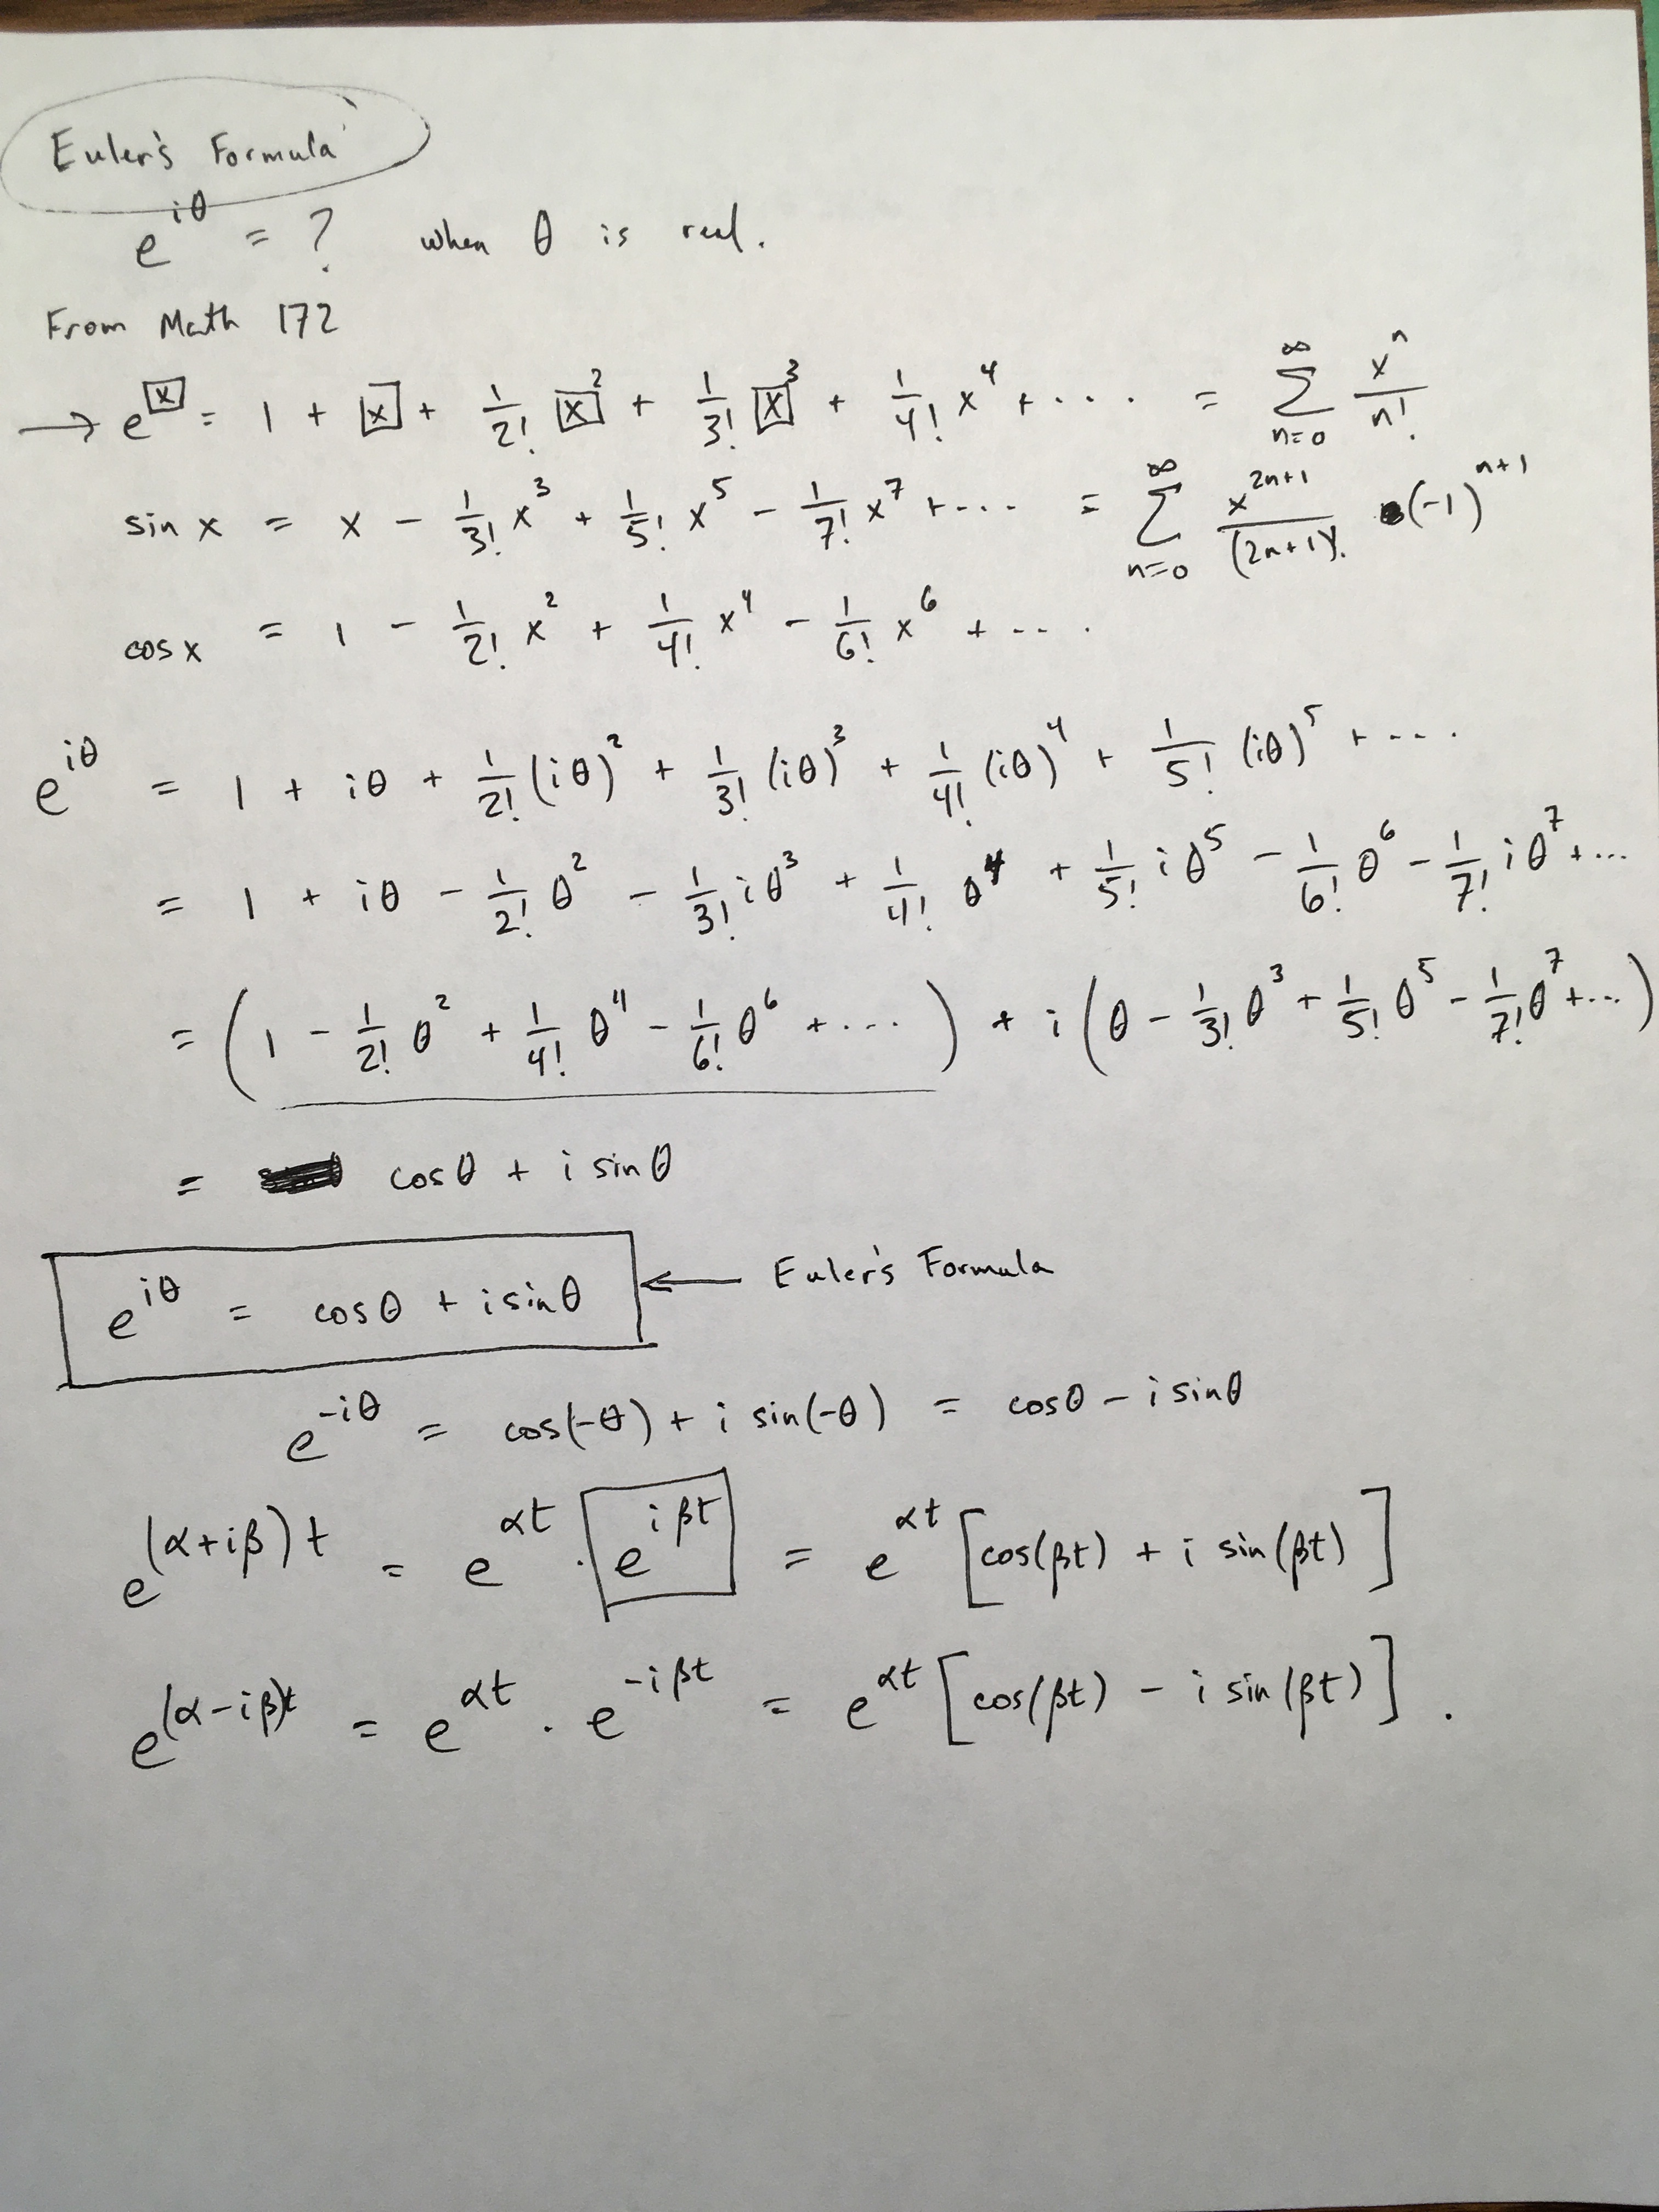 Euler's Formula
e^{iθ} = ? when θ is real.
From Math 172
→ e^{x} = 1 + x + 1/2! x^2 + 1/3! x^3 + 1/4! x^4 + .... = ∑_{n=0}^{∞} x^n/n!
sin x = x - 1/3! x^3 + 1/5! x^5 - 1/7! x^7 + .... = ∑_{n=0}^{∞} x^{2n+1}/(2n+1)! (-1)^{n+1}
cos x = 1 - 1/2! x^2 + 1/4! x^4 - 1/6! x^6 + ....
e^{iθ} = 1 + iθ + 1/2! (iθ)^2 + 1/3! (iθ)^3 + 1/4! (iθ)^4 + 1/5! (iθ)^5 + ....
= 1 + iθ - 1/2! θ^2 - 1/3! iθ^3 + 1/4! θ^4 + 1/5! iθ^5 - 1/6! θ^6 - 1/7! iθ^7 + ...
= (1 - 1/2! θ^2 + 1/4! θ^4 - 1/6! θ^6 + ....) + i(θ - 1/3! θ^3 + 1/5! θ^5 - 1/7! θ^7 + ...)
= cosθ + i sinθ
e^{iθ} = cosθ + i sinθ ← Euler's Formula
e^{-iθ} = cos(-θ) + i sin(-θ) = cosθ - i sinθ
e^{(α+iβ)t} = e^{αt} · e^{iβt} = e^{αt} [cos(βt) + i sin(βt)]
e^{(α-iβ)t} = e^{αt} · e^{-iβt} = e^{αt} [cos(βt) - i sin(βt)].